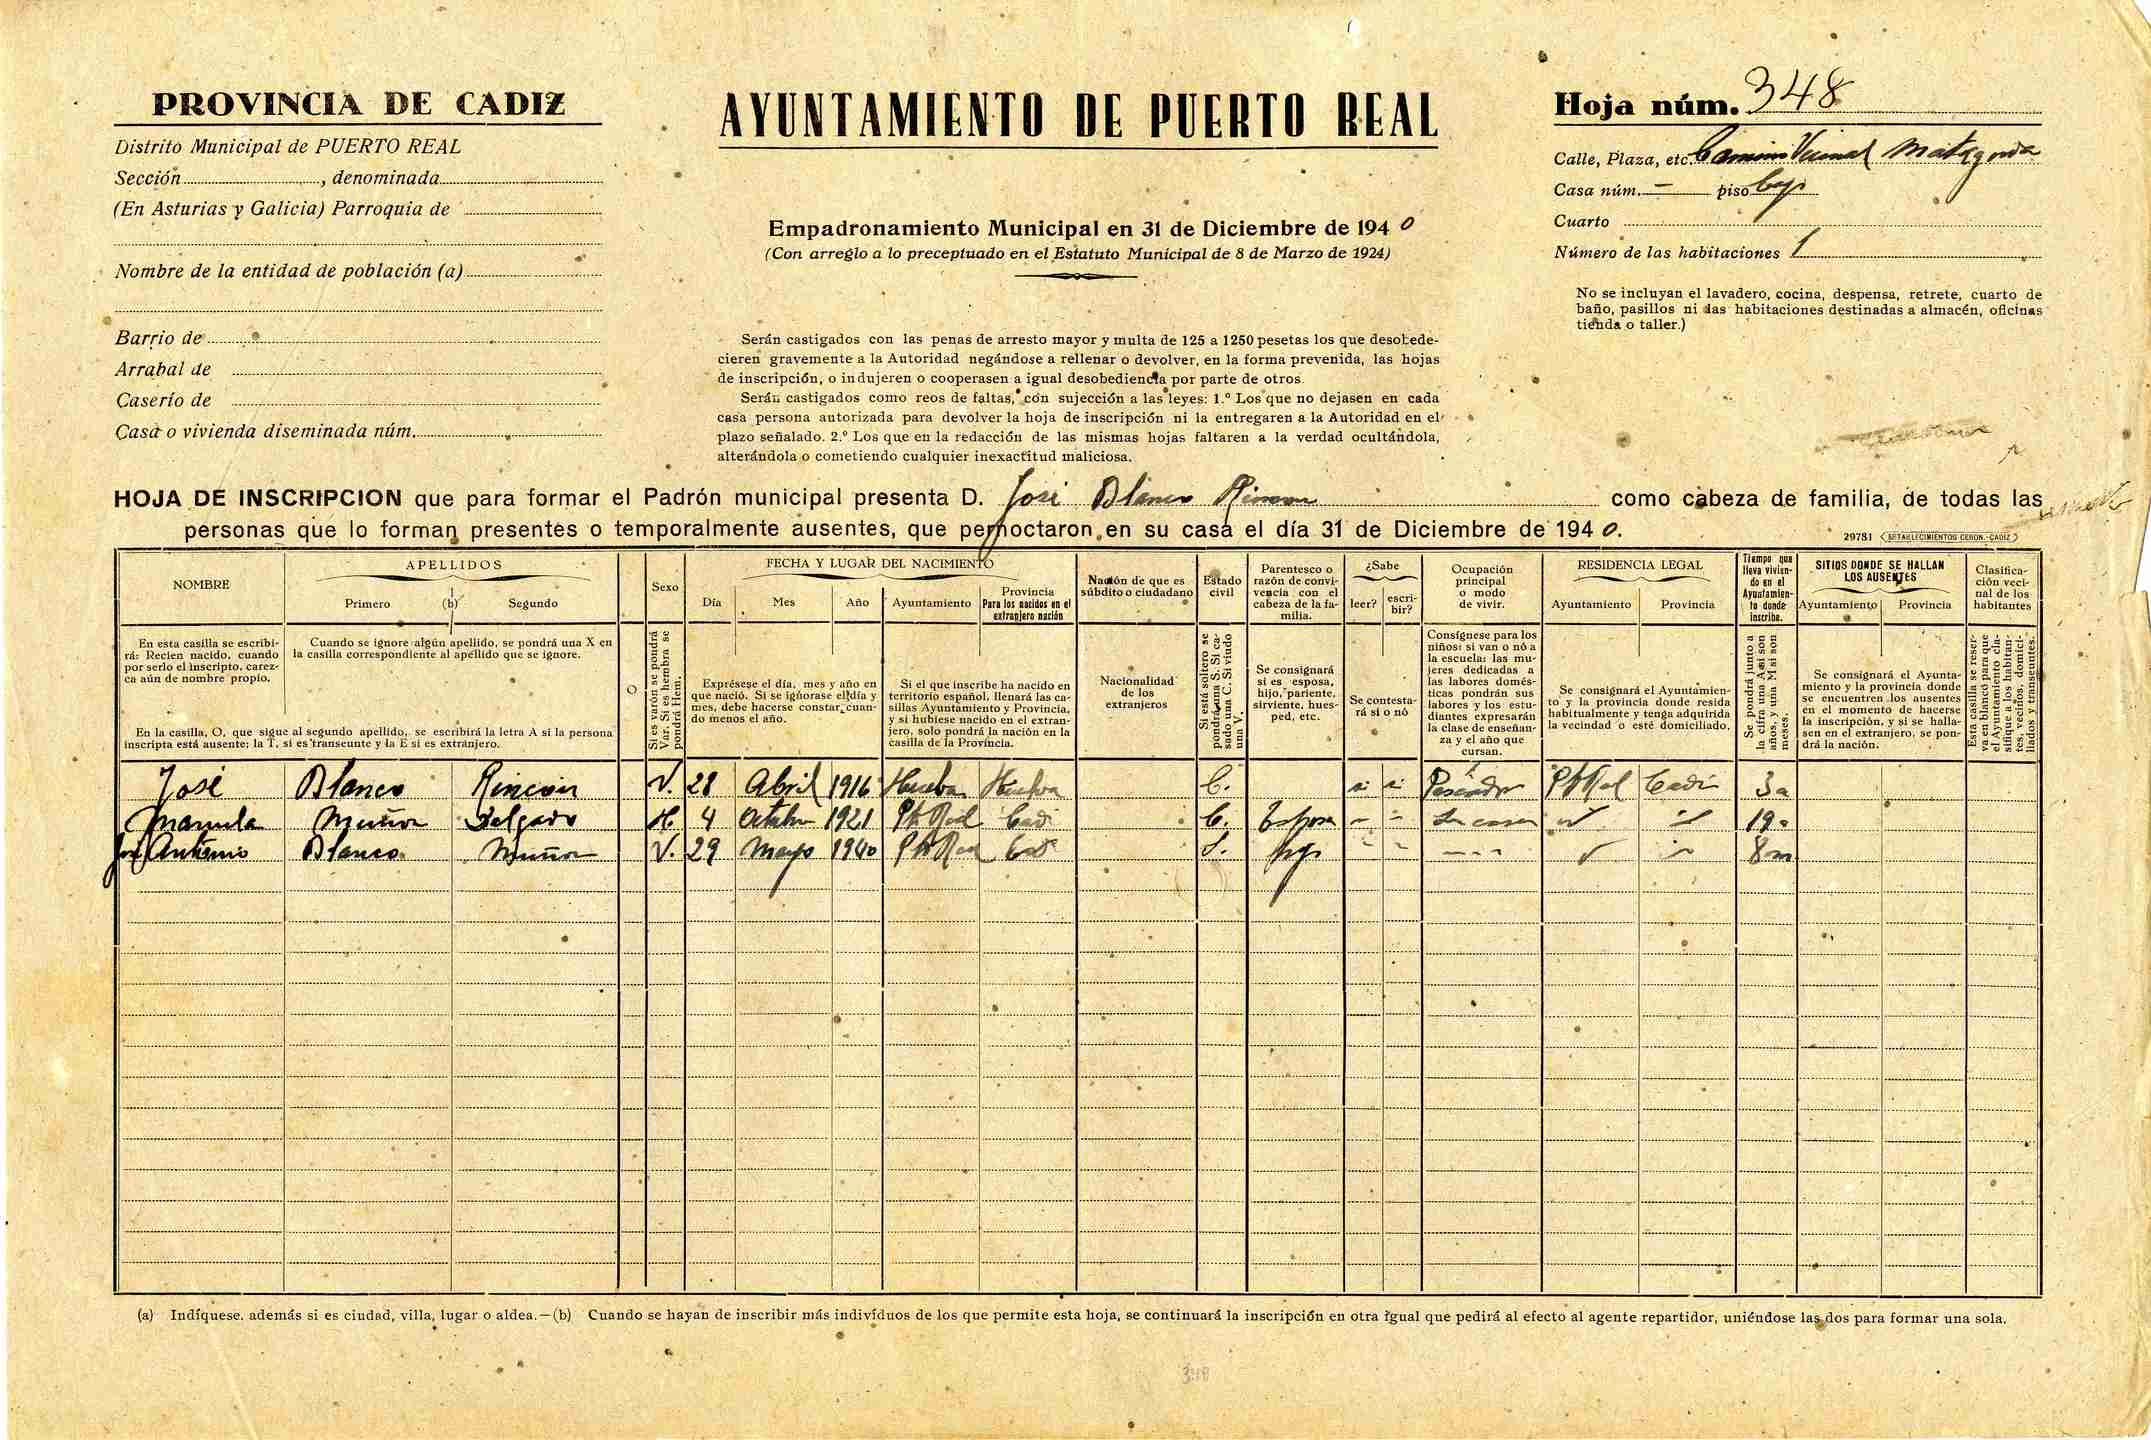 PROVINCIA DE CADIZ
Distrito Municipal de PUERTO REAL
Sección , denominada
(En Asturias y Galicia) Parroquia de
Nombre de la entidad de población (a)
Barrio de
Arrabal de
Caserío de
Casa o vivienda diseminada núm.
AYUNTAMIENTO DE PUERTO REAL
Empadronamiento Municipal en 31 de Diciembre de 1940
(Con arreglo a lo preceptuado en el Estatuto Municipal de 8 de Marzo de 1924)
Serán castigados con las penas de arresto mayor y multa de 125 a 1250 pesetas los que desobede-
cieren gravemente a la Autoridad negándose a rellenar o devolver, en la forma prevenida, las hojas
de inscripción, o indujeren o cooperasen a igual desobediencia por parte de otros.
Serán castigados como reos de faltas, con sujección a las leyes: 1.º Los que no dejasen en cada
casa persona autorizada para devolver la hoja de inscripción ni la entregaren a la Autoridad en el
plazo señalado. 2.º Los que en la redacción de las mismas hojas faltaren a la verdad ocultándola,
alterándola o cometiendo cualquier inexactitud maliciosa.
Hoja núm. 348
Calle, Plaza, etc. Camino Vecinal Matagorda
Casa núm. — piso bajo
Cuarto
Número de las habitaciones 1
No se incluyan el lavadero, cocina, despensa, retrete, cuarto de
baño, pasillos ni las habitaciones destinadas a almacén, oficinas
tienda o taller.)
HOJA DE INSCRIPCION que para formar el Padrón municipal presenta D. José Blanco Rincon como cabeza de familia, de todas las
personas que lo forman presentes o temporalmente ausentes, que pernoctaron en su casa el día 31 de Diciembre de 1940.
29781 ESTABLECIMIENTOS CERON.-CADIZ
NOMBRE
APELLIDOS
Primero (b) Segundo
O
Sexo
FECHA Y LUGAR DEL NACIMIENTO
Día Mes Año Ayuntamiento
Provincia
Para los nacidos en el
extranjero nación
Nación de que es
súbdito o ciudadano
Estado
civil
Parentesco o
razón de convi-
vencia con el
cabeza de la fa-
milia.
¿Sabe
leer? escri-
bir?
Ocupación
principal
o modo
de vivir.
RESIDENCIA LEGAL
Ayuntamiento Provincia
Tiempo que
lleva vivien-
do en el
Ayuntamien-
to donde
inscribe.
SITIOS DONDE SE HALLAN
LOS AUSENTES
Ayuntamiento Provincia
Clasifica-
ción veci-
nal de los
habitantes
En esta casilla se escribi-
rá: Recien nacido, cuando
por serlo el inscripto, carez-
ca aún de nombre propio.
Cuando se ignore algún apellido, se pondrá una X en
la casilla correspondiente al apellido que se ignore.
En la casilla, O, que sigue al segundo apellido, se escribirá la letra A si la persona
inscripta está ausente; la T, si es transeunte y la E si es extranjero.
Si es varón se pondrá
Var. Si es hembra se
pondrá Hem.
Exprésese el día, mes y año en
que nació. Si se ignorase el día y
mes, debe hacerse constar cuan-
do menos el año.
Si el que inscribe ha nacido en
territorio español, llenará las ca-
sillas Ayuntamiento y Provincia,
y si hubiese nacido en el extran-
jero, solo pondrá la nación en la
casilla de la Provincia.
Nacionalidad
de los
extranjeros
Si está soltero se
pondrá una S. Si ca-
sado una C. Si viudo
una V.
Se consignará
si es esposa,
hijo, pariente,
sirviente, hues-
ped, etc.
Se contesta-
rá si o nó
Consígnese para los
niños: si van o nó a
la escuela; las mu-
jeres dedicadas a
las labores domés-
ticas pondrán sus
labores y los estu-
diantes expresarán
la clase de enseñan-
za y el año que
cursan.
Se consignará el Ayuntamien-
to y la provincia donde resida
habitualmente y tenga adquirida
la vecindad o esté domiciliado.
Se pondrá junto a
la cifra una A si son
años, y una M si son
meses.
Se consignará el Ayunta-
miento y la provincia donde
se encuentren los ausentes
en el momento de hacerse
la inscripción, y si se halla-
sen en el extranjero, se pon-
drá la nación.
Esta casilla se reser-
va en blanco para que
el Ayuntamiento cla-
sifique a los habitan-
tes, vecinos, domici-
liados y transeuntes.
José Blanco Rincón V. 28 Abril 1916 Huelva Huelva C. si si Pescador Pto Real Cadi 3a
Manuela Muñoz Delgado H 4 Octubre 1921 Pto Real Cadi C. Esposa – – Su casa 19a
José Antonio Blanco Muñoz V. 29 Mayo 1940 Pto Real Cadi S. hijo – – – – – 8m
(a) Indíquese. además si es ciudad, villa, lugar o aldea.—(b) Cuando se hayan de inscribir más indivíduos de los que permite esta hoja, se continuará la inscripción en otra igual que pedirá al efecto al agente repartidor, uniéndose las dos para formar una sola.
348